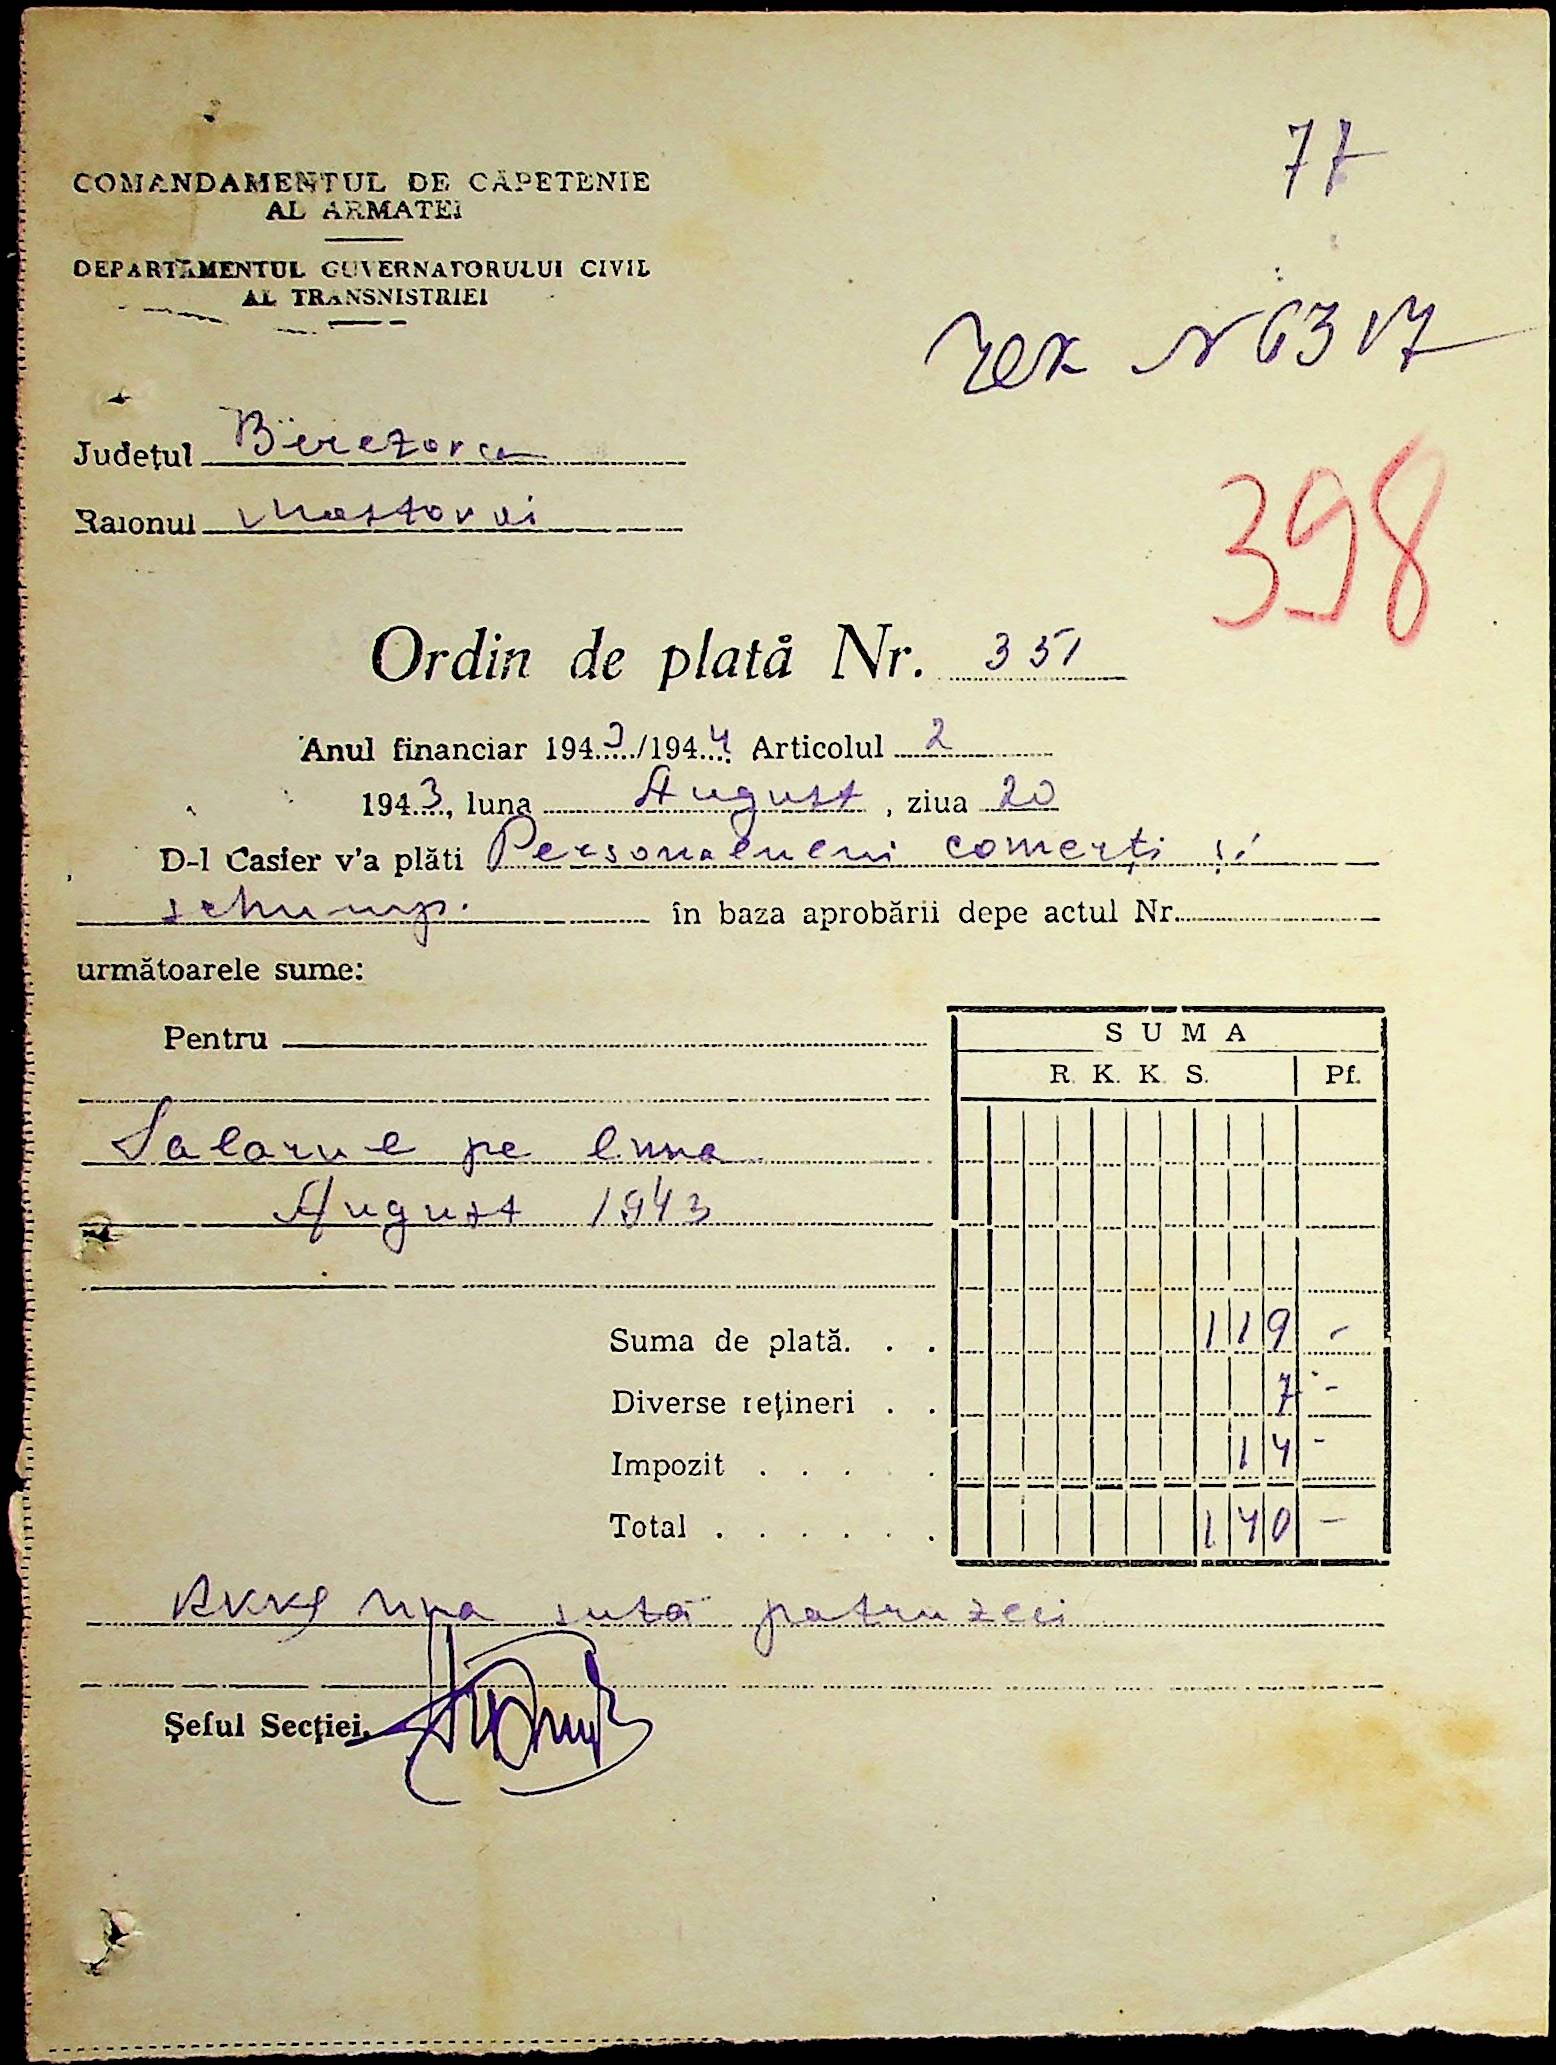 77
COMANDAMENTUL DE CĂPETENIE
AL ARMATEI
DEPARTAMENTUL GUVERNATORULUI CIVIL
AL TRANSNISTRIEI
чек N 6317
Județul Berezovca
Raionul Mostovoi
398
Ordin de plată Nr. 351
Anul financiar 1943/1944 Articolul 2
1943, luna August, ziua 20
D-l Casier v'a plăti Personalului comerț și
schimp. în baza aprobării depe actul Nr.
următoarele sume:
Pentru
SUMA
R. K. K. S. Pf.
Salarul pe luna
August 1943
Suma de plată. . . 119 -
Diverse rețineri . . 7 -
Impozit . . . . . 14 -
Total . . . . . . 140 -
RKKS una sută patruzeci
Șeful Secției,